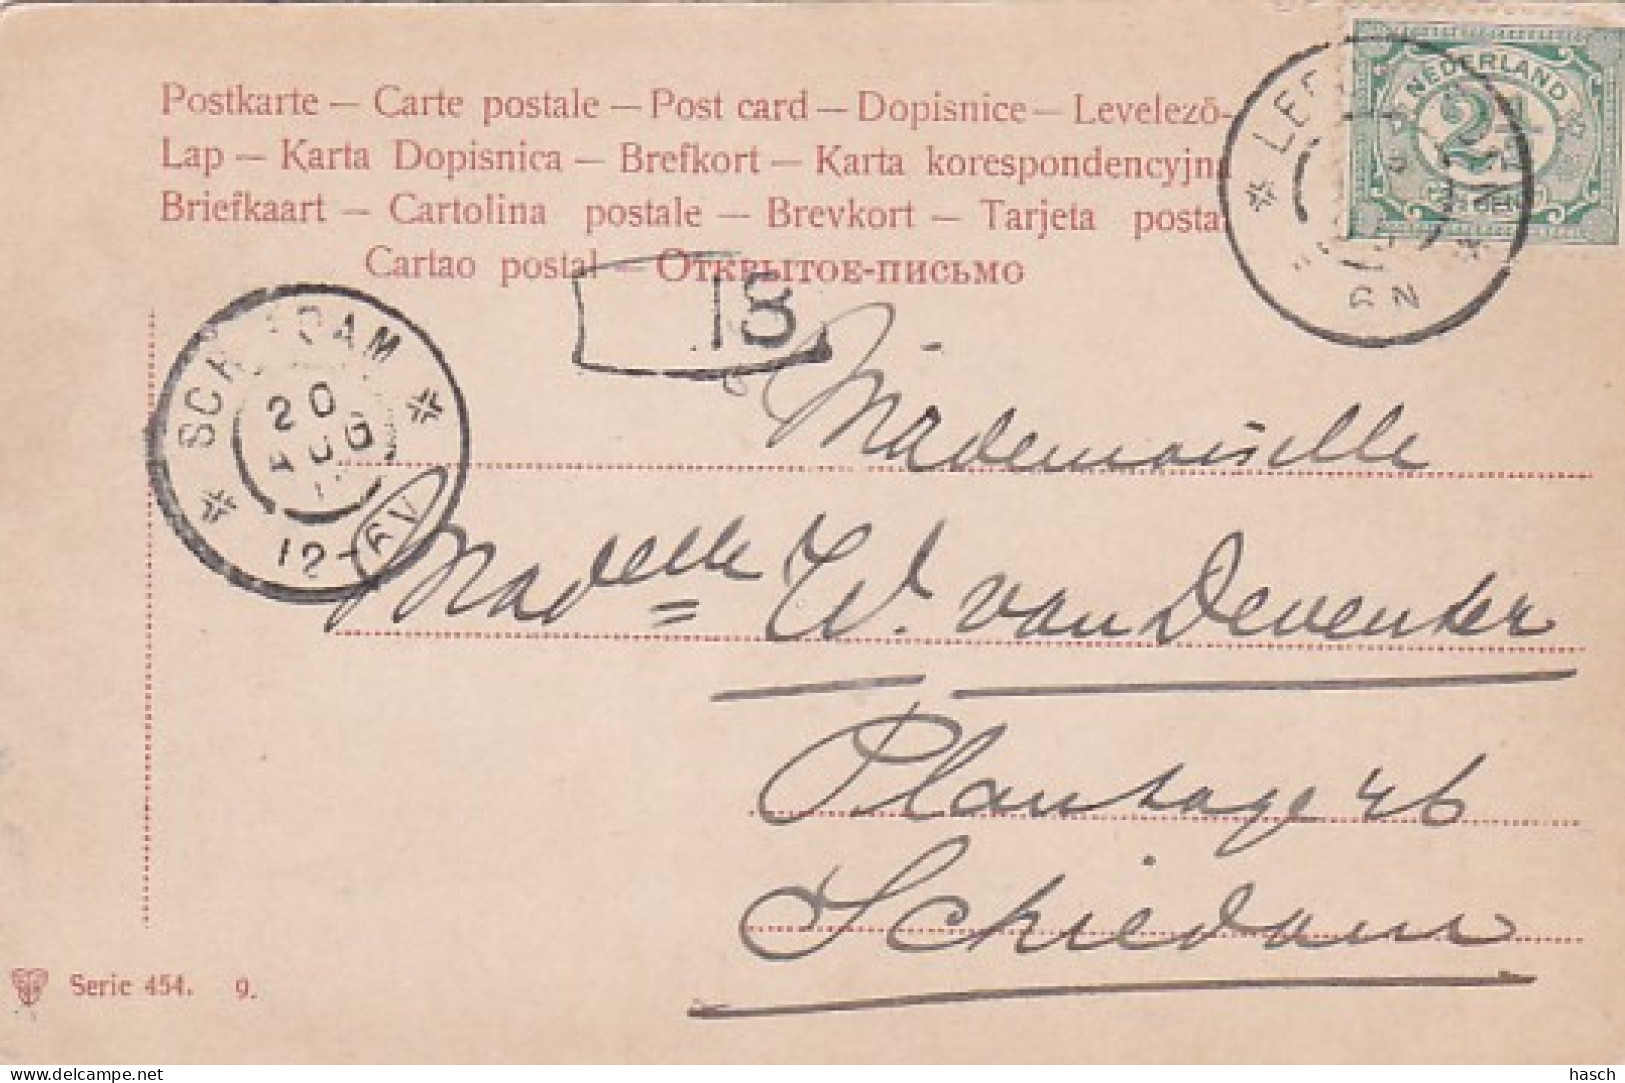 Postkarte — Carte postale — Post card — Dopisnice — Levelezö-
Lap — Karta Dopisnica — Brefkort — Karta korespondencyjna
Briefkaart — Cartolina postale — Brevkort — Tarjeta postal
Cartao postal — Открытое-письмо
NEDERLAND
2½
CEN
6 N
18
SCHIEDAM
20
AUG
12-6V
Mademoiselle
Madelle W. van Deventer
Plantage 46
Schiedam
Serie 454. 9.
delcampe.net
hasch